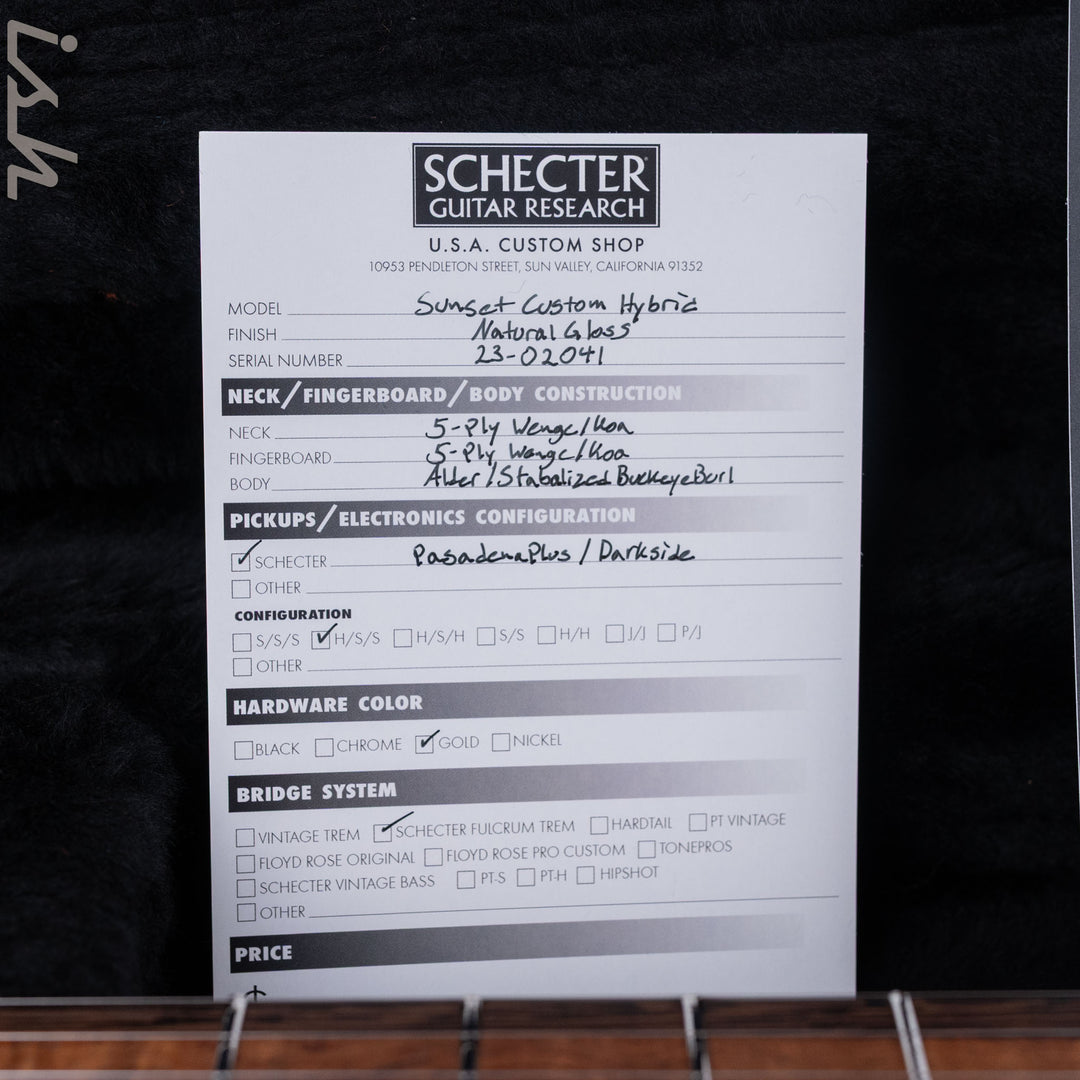 ish
SCHECTER
GUITAR RESEARCH
U.S.A. CUSTOM SHOP
10953 PENDLETON STREET, SUN VALLEY, CALIFORNIA 91352
MODEL Sunset Custom Hybrid
FINISH Natural Gloss
SERIAL NUMBER 23-02041
NECK/FINGERBOARD/BODY CONSTRUCTION
NECK 5-Ply Wenge/Koa
FINGERBOARD 5-Ply Wenge/Koa
BODY Alder/Stabalized Buckeye Burl
PICKUPS/ELECTRONICS CONFIGURATION
SCHECTER Pasadena Plus / Darkside
OTHER
CONFIGURATION
S/S/S H/S/S H/S/H S/S H/H J/J P/J
OTHER
HARDWARE COLOR
BLACK CHROME GOLD NICKEL
BRIDGE SYSTEM
VINTAGE TREM SCHECTER FULCRUM TREM HARDTAIL PT VINTAGE
FLOYD ROSE ORIGINAL FLOYD ROSE PRO CUSTOM TONEPROS
SCHECTER VINTAGE BASS PT-S PT-H HIPSHOT
OTHER
PRICE